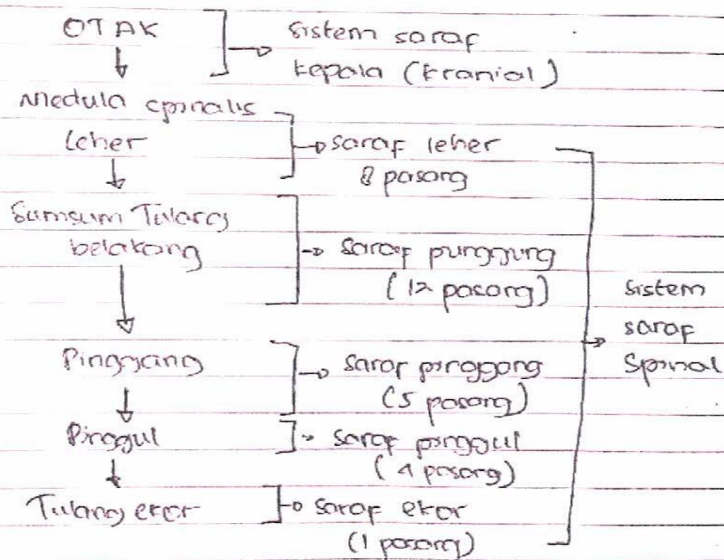 OTAK
sistem saraf
kepala (kranial)
Medula spinalis
leher
saraf leher
8 pasang
Sumsum Tulang
belakang
saraf punggung
(12 pasang)
Pinggang
saraf pinggang
(5 pasang)
Pinggul
saraf pinggul
(4 pasang)
Tulang ekor
saraf ekor
(1 pasang)
sistem
saraf
Spinal